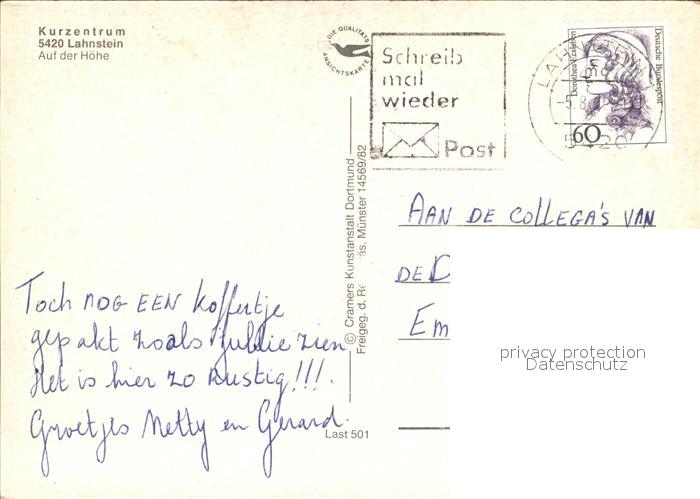 Kurzentrum
5420 Lahnstein
Auf der Höhe
DIE QUALITÄTS
ANSICHTSKARTE
Schreib
mal
wieder
Post
LAHNSTEIN
Dorothea Erxleben
Deutsche Bundespost
60
© Cramers Kunstanstalt Dortmund
Freigeg. d. Re äs. Münster 14569/82
AAN DE COLLEGA'S VAN
DE
Em
Toch nog EEN koffertje
gepakt zoals jullie zien
Het is hier zo Rustig!!!.
Groetjes Netty en Gerard.
Last 501
privacy protection
Datenschutz